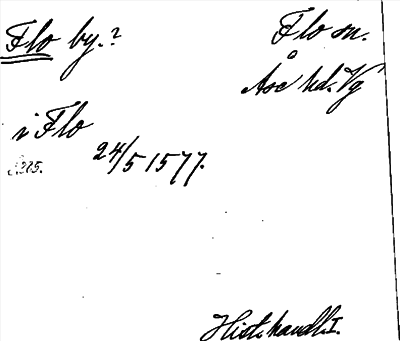 Flo by.?
Flo sn.
Åse hd. Vg
i Flo
S. 275.
24/5 1577.
Hist. handl. I.